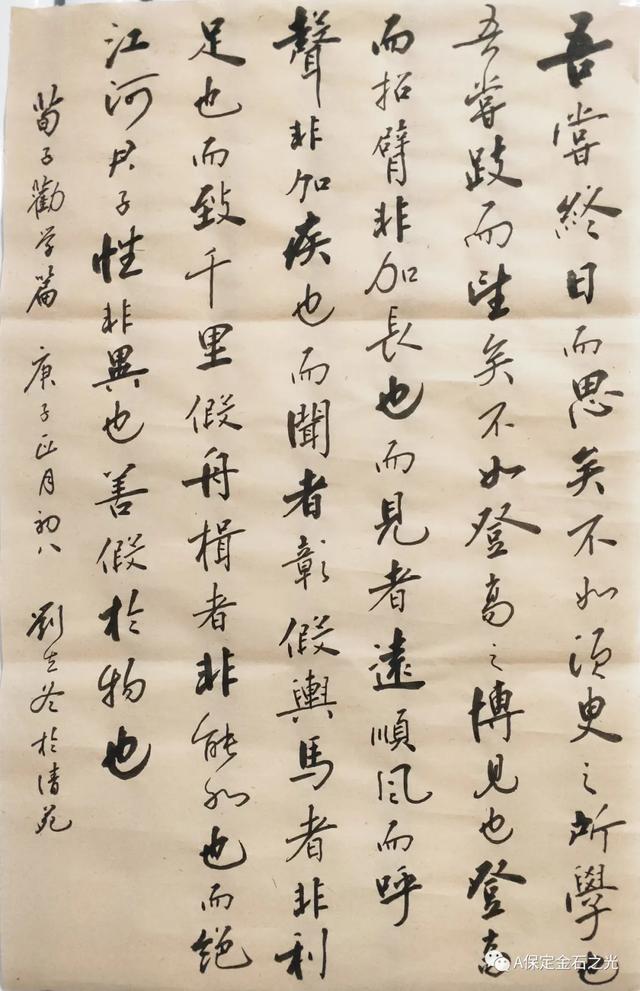 吾嘗終日而思矣不如須臾之所學也
吾嘗跂而望矣不如登高之博見也登高
而招臂非加長也而見者遠順風而呼
聲非加疾也而聞者彰假輿馬者非利
足也而致千里假舟楫者非能水也而絕
江河君子性非異也善假於物也
荀子勸学篇 庚子正月初八 劉立冬於清苑
A保定金石之光